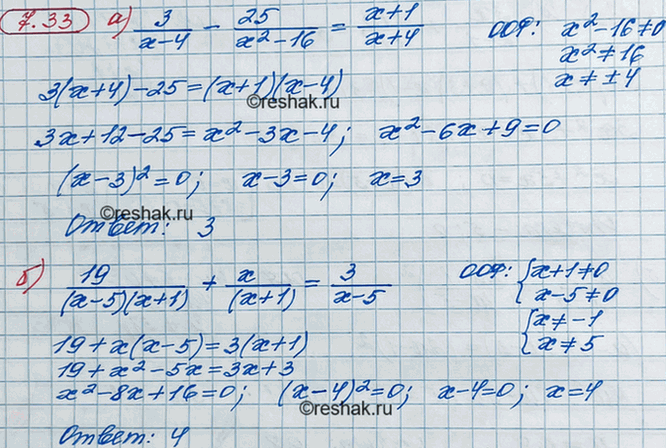 7.33 а) 3/(x-4) - 25/(x²-16) = (x+1)/(x+4) ООФ: x²-16≠0
x²≠16
x≠±4
3(x+4)-25=(x+1)(x-4)
©reshak.ru
3x+12-25=x²-3x-4; x²-6x+9=0
(x-3)²=0; x-3=0; x=3
©reshak.ru
Ответ: 3
б) 19/((x-5)(x+1)) + x/(x+1) = 3/(x-5) ООФ: { x+1≠0
x-5≠0
{ x≠-1
x≠5
19+x(x-5)=3(x+1)
19+x²-5x=3x+3
x²-8x+16=0; (x-4)²=0; x-4=0; x=4
©reshak.ru
Ответ: 4